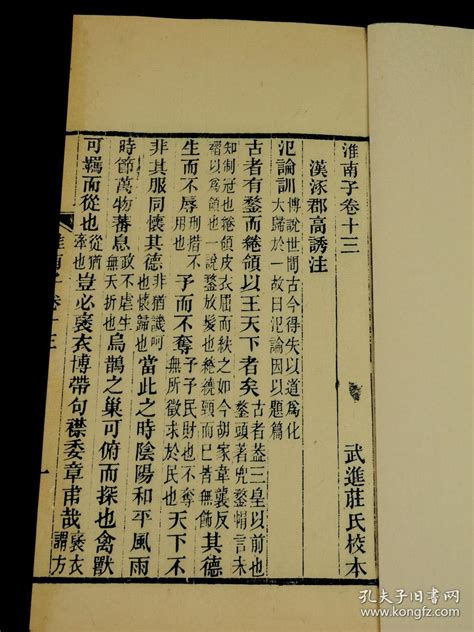 淮南子卷十三 武進莊氏校本
漢涿郡高誘注
氾論訓 博說世間古今得失以道為化
大歸於一故曰氾論因以題篇
古者有鍪而綣領以王天下者矣 古者葢三皇以前也
鍪頭著兜鍪帽言未
知制冠也綣領皮衣屈而紩之如今胡家韋襲反
褶以為領也一說鍪放髮也綣繞頸而已皆無飾 其德
生而不辱 刑措不
用也 予而不奪 予予民財也不奪
無所徵求於民也 天下不
非其服同懷其德 非猶譏呵
也懷歸也 當此之時陰陽和平風雨
時節萬物蕃息 政不虐生
無夭折也 烏鵲之巢可俯而探也禽獸
可羈而從也 從猶
牽也 豈必襃衣博帶句襟委章甫哉 襃衣
謂方
淮南子 卷十三 一
孔夫子旧书网
www.kongfz.com